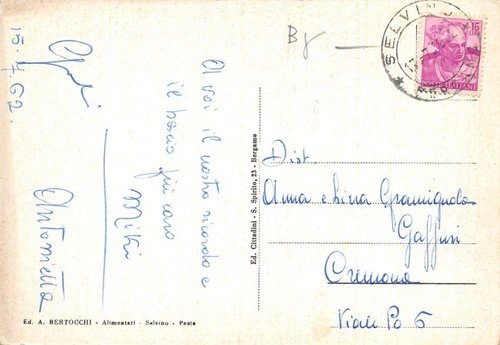 15.7.62.
A voi il nostro ricordo e
il bacio più caro
Miki
Antonietta
By
SELVINO
15
LIRE
ITALIANE
Dist
Anna e Lina Gramignola
Gaffuri
Cremona
Viale Po 6
Ed. Cittadini - S. Spirito, 23 - Bergamo
Ed. A. BERTOCCHI - Alimentari - Selvino - Posta